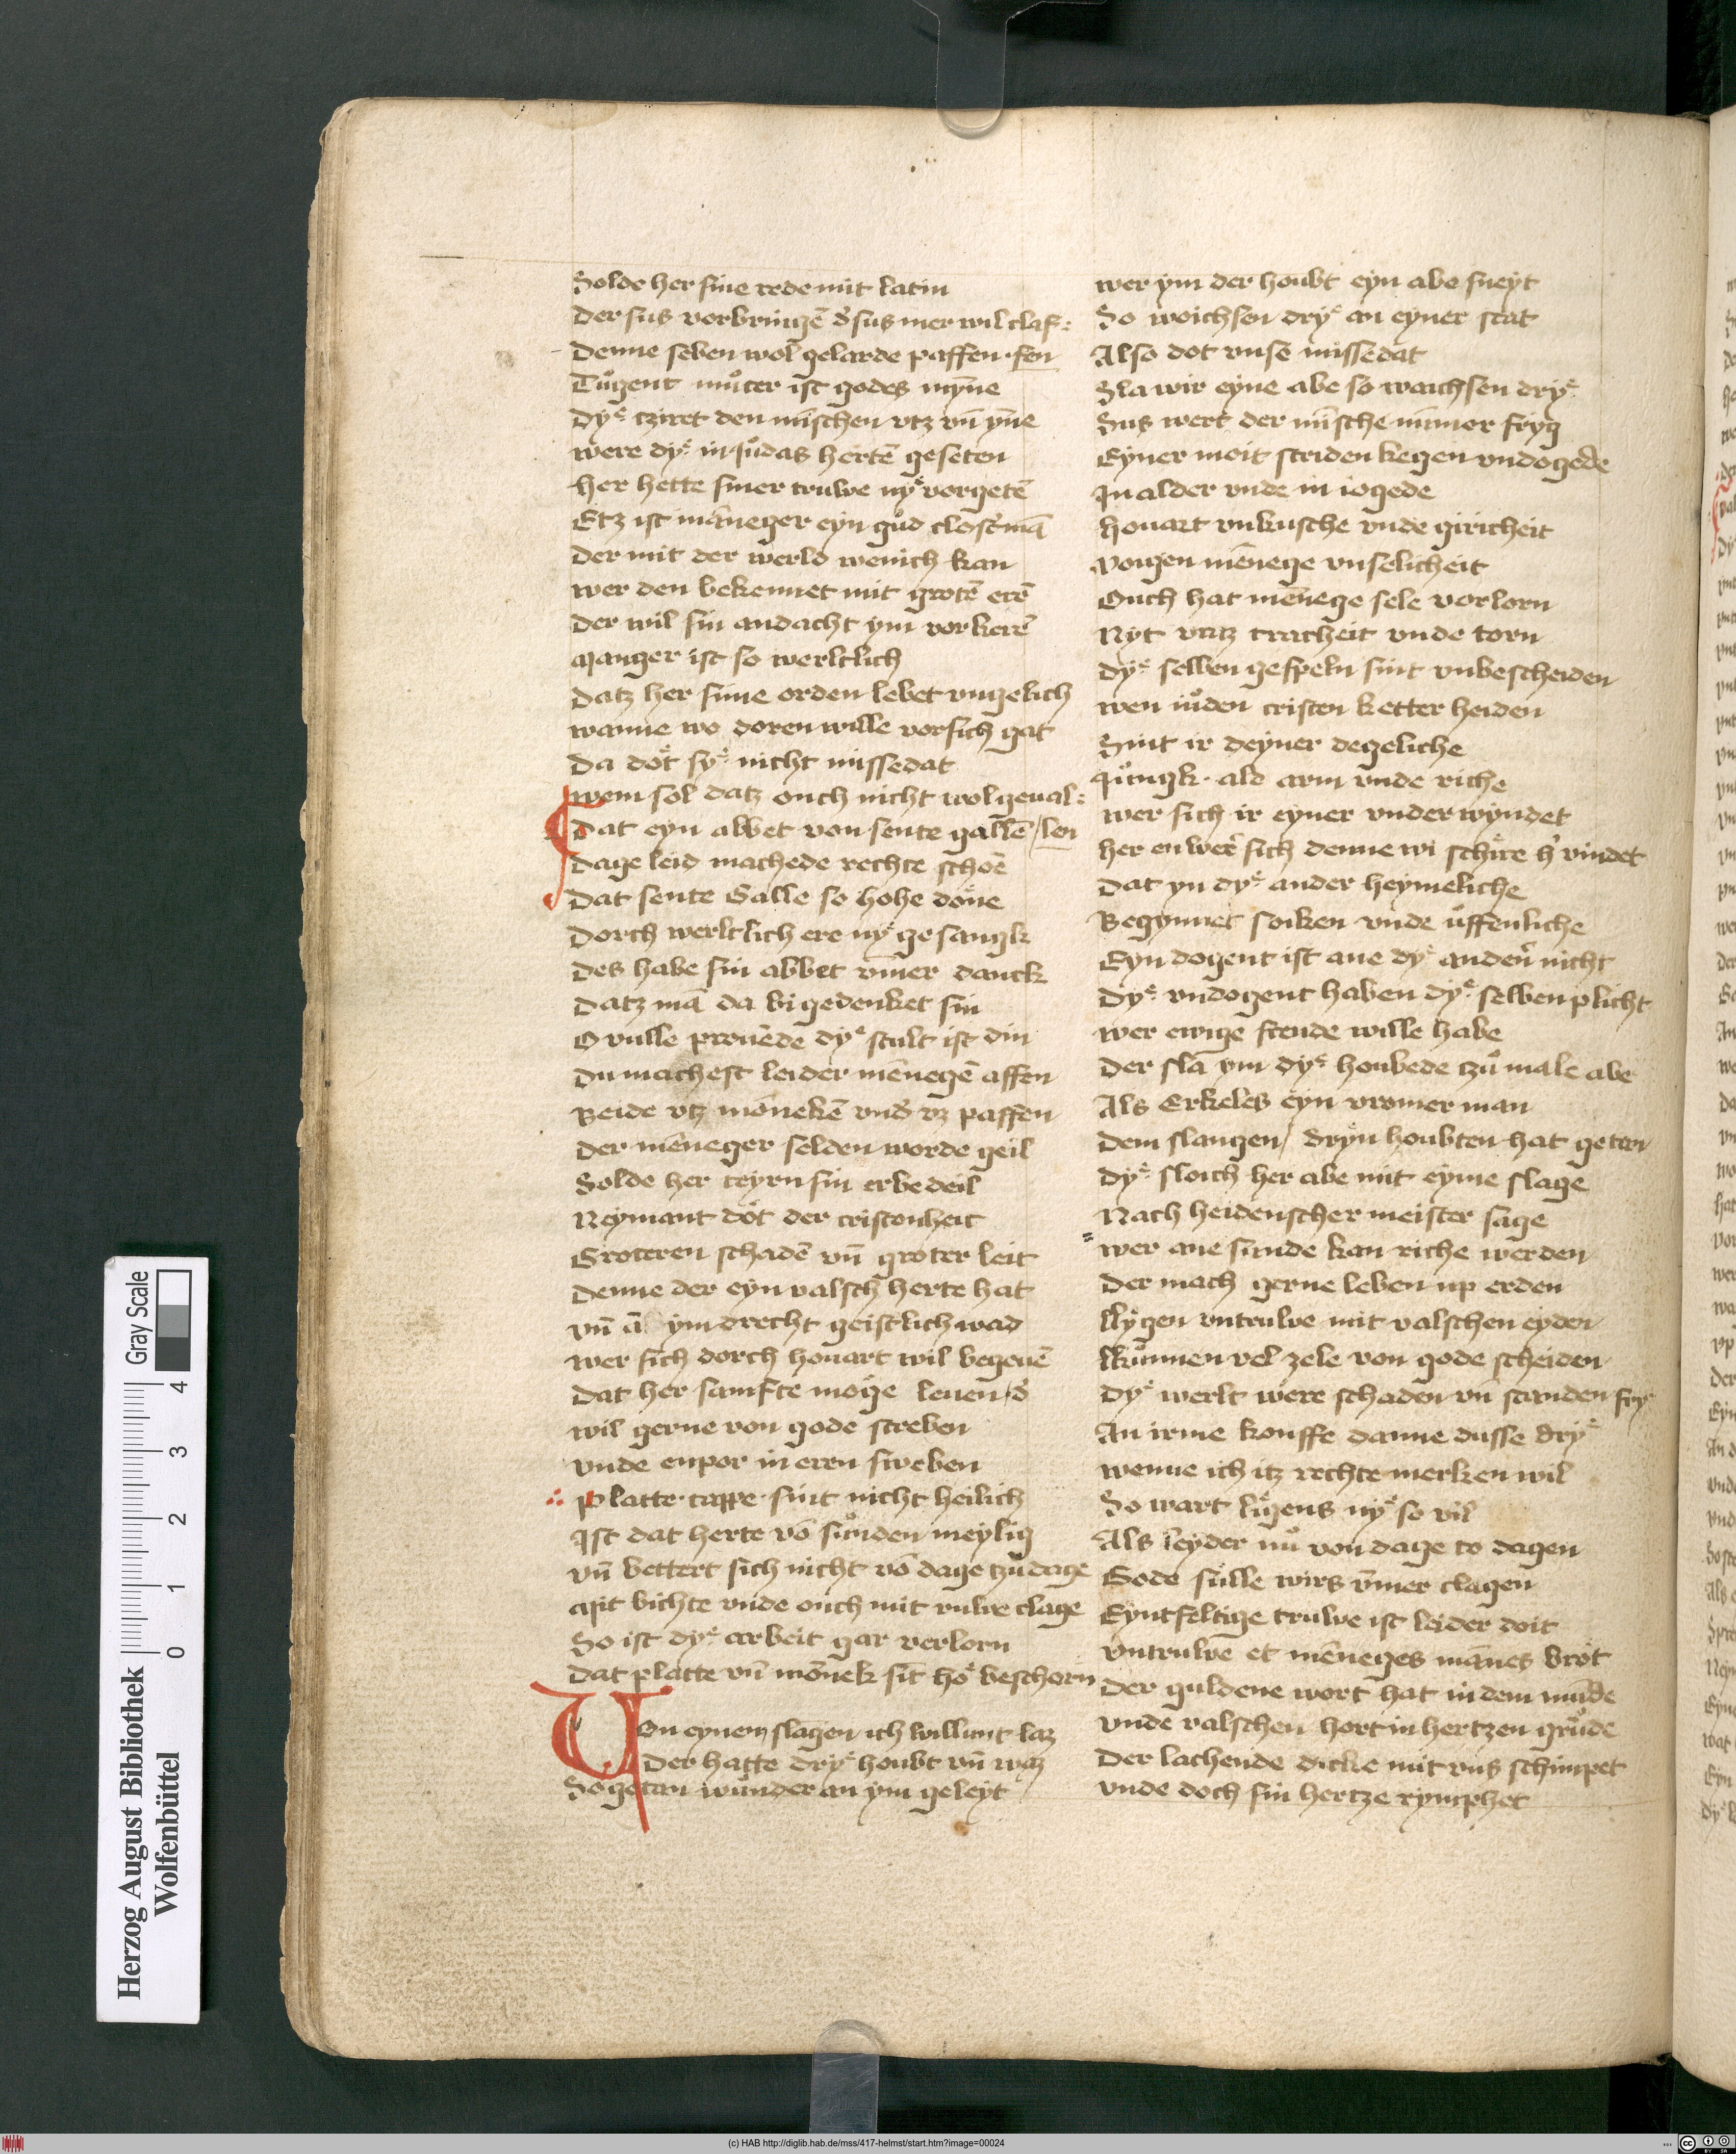 Solde her sine rede mit latin
Der sus vorbringē d̕ sus mer wil claf:
Denne seben wol gelarde paffen · fen
Tůgent můter ist godes mȳne
Dyͤ tziret den mīschen vtz vn̄ yn̄e
were dyͤ in Jůdas hertē geseten
her hette siner truwe nyͤ vorgetē
Etz ist māneger eyn gůd clost̕mā
Der mit der werld wenich kan
wer den bekennet mit grotē erē
Der wil sin andacht ym vorkerē
Manger ist so werltlich
Datz her sime orden lebet vngelich
wanne wo doren wille vorsich gat
Da döt syͤ nicht missedat
wem sol datz ouch nicht wol geual:
Dat eyn abbet von sente gallē / len
Dage leid machede rechte schoē
Dat sente Galle so hohe döne
Dorch werltlich ere nyͤ gesangk
Des habe sin abbet v̄mer danck
Datz mā da bi gedenket sin
O vulle prouēde dyͤ scult ist din
Du machest leider mēnegē affen
Beide vtz mōnekē vnd̕ vz paffen
Der mēneger selden worde geil
Solde her teyrn sin erbedeil
Neymant döt der cristenheit
Groteren schadē vn̄ groter leit
Denne der eyn valsch herte hat
vn̄ ā ym drecht geistlich wad
wer sich dorch houart wil begeuē
Dat her samfte moͤge leuen / d̕
wil gerne von gode streben
vnde enpor in eren sweben
Platte · cappe · sint nicht heilich
Ist dat herte vō sůnden meylig
vn̄ bettert sich nicht vō dage tzů dage
Mit bichte vnde ouch mit ruwe clage
So ist dyͤ arbeit gar verlorn
Dat platte vn̄ mōnek sīt hoͤ beschorn
Von eynem slagen ich willunt laz
Der hatte dryͤ houbt vn̄ waz
So getan wůnder an ym geleyt
wer ym der houbt eyn abe sneyt
So woichsen dryͤ an eyner stat
Also dot vnse missedat
Sla wir eyne abe so waichsen dryͤ
Sus wert der mīsche nūmer fryg
Eyner moit striden kegen vndogede
In alder vnde in iogede
Houart vnkusche vnde giricheit
vōigen mēnege vnselicheit
Ouch hat mēnege sele vorlorn
Nyt vratz tracheit vnde torn
Dyͤ selben gespeln sint vnbescheiden
wen iůden cristen ketter heiden
Sint ir deyner degeliche
Jůngk · ald arm vnde riche
wer sich ir eyner vnder wyndet
her en wer̕ sich denne wi schire h̕ vindet
Dat yn dyͤ ander heymeliche
Begynnet soiken vnde ůffenliche
Eyn dogent ist ane dyͤ ander̕ nicht
Dyͤ vndogent haben dyͤ selben plicht
wer ewige freude wille habe
Der sla ym dyͤ houbede tzů male abe
Als Erkeles eyn vromer man
Dem slangen / dryͤn houbten hat getan
Dyͤ sloich her abe mit eyme slage
Nach heidenscher meister sage
wer ane sunde kan riche werden
Der mach gerne leben up erden
Llygen vntruwe mit valschen eyden
Kkůnnen vel zele von gode scheiden
Dyͤ werlt were schaden vn̄ scanden fryͤ
An irme kouffe danne dusse dryͤ
wenne ich itz rechte merken wil
So wart liͤgens nyͤ so vil
Als leyder nů von dage to dagen
Gode sulle wirs v̄mer clagen
Eyntfeltige truwe ist leider doit
vntruwē et mēneges mānes bröt
Der guldene wort hat in dem mūde
vnde valschen hort in hertzen grůde
Der lachende dicke mit vns schimpet
vnde doch sin hertze rymphet
Herzog August Bibliothek
Wolfenbüttel
Gray Scale
0 1 2 3 4
(c) HAB http://diglib.hab.de/mss/417-helmst/start.htm?image=00024